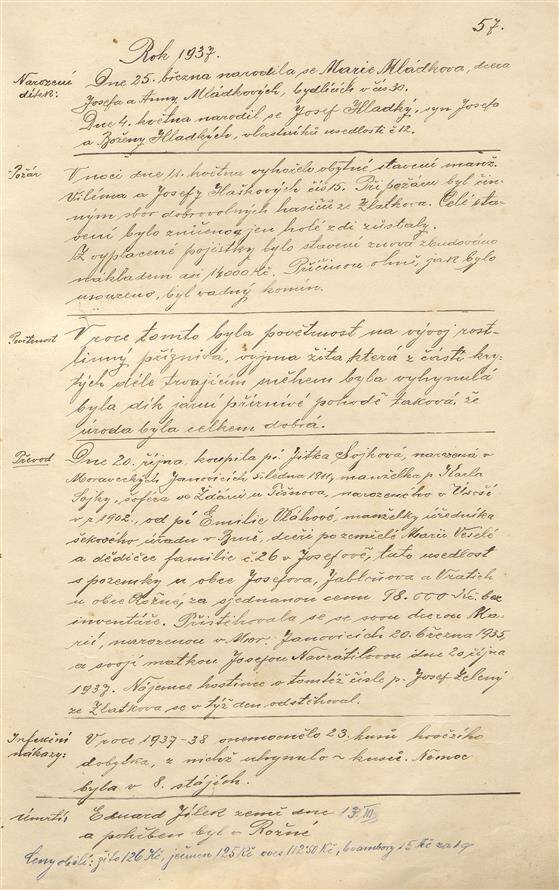 57.
Rok 1937.
Narození dítek: Dne 25. března narodila se Marie Mládkova, dcera
Josefa a Anny Mládkových, bydlících v čís 30.
Dne 4. května narodil se Josef Hladký, syn Josefa
a Boženy Hladkých, vlastníků usedlosti č 12.
Požár V noci dne 11. května vyhořelo obytné stavení manž.
Viléma a Josefy Haškových čís 15. Při požáru byl čin-
ným sbor dobrovolných hasičů ze Zlatkova. Celé sta-
vení bylo zničeno, jen holé zdi zůstaly.
Z vyplacené pojistky bylo stavení znova zbudováno
nákladem asi 17000 Kč. Příčinou ohně, jak bylo
usouzeno, byl vadný komín.
Povětrnost V roce tomto byla povětrnost na vývoj rost-
linný příznivá, vyjma žita, která z části kry-
tých déle trvajícím sněhem byla vyhynulá
byla dík jarní příznivé pohodě taková, že
úroda byla celkem dobrá.
Převod Dne 20. října, koupila pí Jitka Sojková, narozená v
Moraveckých Janovicích 5. ledna 1911, manželka p. Karla
Sojky, šoféra ve Žďárci u Tišnova, narozeného v
v r. 1902, od pí Emilie manželky úředníka
šekového úřadu v Brně, dceři po zemřelé Marii Veselé
a dědičce familie č. 26 v Josefově, tuto usedlost
s pozemky u obce Josefova, Jablňova a
u obce Rožné, za sjednanou cenu 98.000 Kč. bez
inventáře. Přistěhovala se se svou dcerou Ma-
rií, narozenou v Mor. Janovicích 20. března 1935
a svojí matkou Josefou Navrátilovou dne 20 října
1937. Nájemce hostince v tomtéž čísle p. Josef Zelený
ze Zlatkova se v týž den odstěhoval.
Infekční nákazy: V roce 1937-38 onemocnělo 23 kusů hovězího
dobytka, z nichž uhynulo kusů. Nemoc
byla v 8. stájích.
Úmrtí: Eduard Jílek zemř dne 13/III,
a pohřben byl v Rožné
Ceny obilí: žito 126 Kč, ječmen 125 Kč oves 112.50 Kč, brambory 15 Kč za 1 q